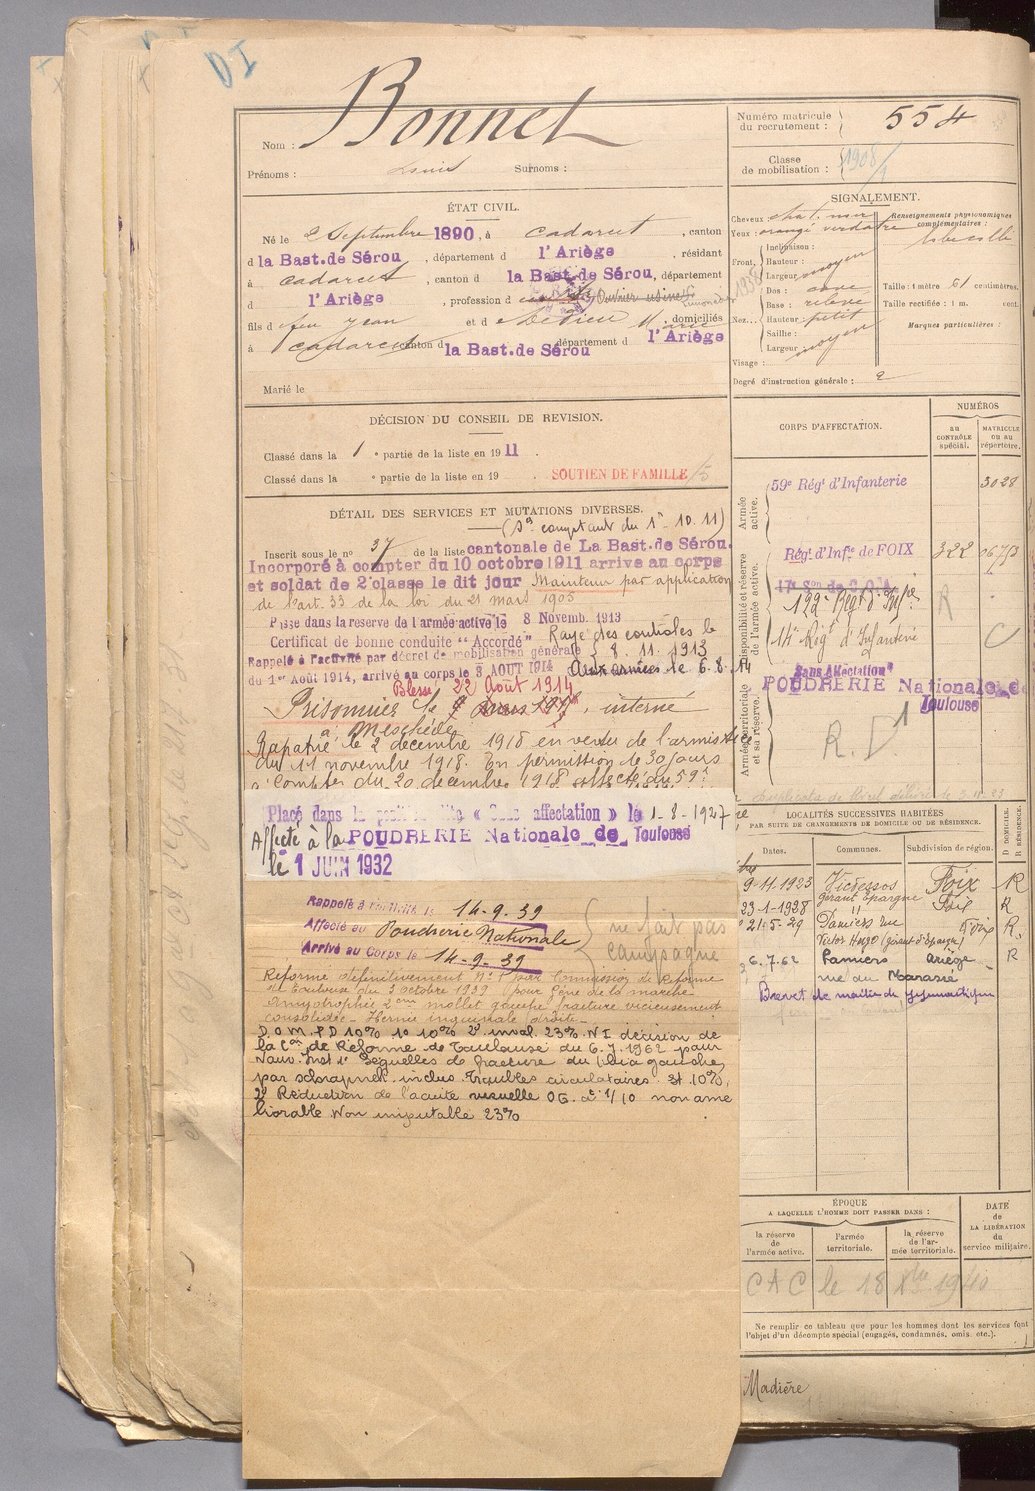 Nom : Bonnet
Prénoms : Louis Surnoms :
ÉTAT CIVIL.
Né le 2 Septembre 1890, à Cadarcet, canton
d la Bast. de Sérou, département d l'Ariège, résidant
à Cadarcet, canton d la Bast. de Sérou, département
d l'Ariège, profession d
fils d feu Jean et d Marie, domiciliés
à Cadarcet canton d la Bast. de Sérou département d l'Ariège
Marié le
DÉCISION DU CONSEIL DE REVISION.
Classé dans la 1 e partie de la liste en 1911.
Classé dans la e partie de la liste en 19 . SOUTIEN DE FAMILLE
DÉTAIL DES SERVICES ET MUTATIONS DIVERSES.
(Sce comptant du 1er 10.11)
Inscrit sous le no 37 de la liste cantonale de La Bast. de Sérou.
Incorporé à compter du 10 octobre 1911 arrive au corps
et soldat de 2e classe le dit jour Maintenu par application
de l'art. 33 de la loi du 21 mars 1905
Passe dans la reserve de l'armée active le 8 Novemb. 1913
Certificat de bonne conduite "Accordé" Rayé des contrôles le
8.11.1913
Rappelé à l'activité par décret de mobilisation générale
du 1er Août 1914, arrivé au corps le 3 AOUT 1914 Aux armées le 6.8.14
Blessé 22 Août 1914
Prisonnier le interné
à Meschede
Rapatrié le 2 décembre 1918 en vertu de l'armistice
du 11 novembre 1918. En permission de 30 jours
à compter du 20 décembre 1918 affecté au 59e
Placé dans la position dite « Sans affectation » le 1-8-1927
Affecté à la POUDRERIE Nationale de Toulouse
le 1 JUIN 1932
Rappelé à l'activité le 14-9-39
Affecté au Poudrerie Nationale
Arrivé au Corps le 14-9-39
ne fait pas
campagne
Réformé définitivement No 1 par Commission de Réforme
de Toulouse du 3 octobre 1939 pour Gêne de la marche
Amyotrophie 2cm mollet gauche fracture vicieusement
consolidée - Hernie inguinale droite -
D.O.M. PD 10% 1o 10% 2o inval. 23% NI décision de
la Con de Réforme de Toulouse du 6.7.1962 pour
Séquelles de fracture du tibia gauche
par schrapnell inclus. Troubles circulatoires. 10%,
2o Réduction de l'acuité visuelle OG. à 1/10 non amé
liorable Non imputable 23%
Numéro matricule
du recrutement : 554
Classe
de mobilisation : 1908/1
SIGNALEMENT.
Cheveux : chat. noir
Yeux : orangé verdâtre
Front, Inclinaison :
Hauteur :
Largeur moyen
Nez... Dos : cave
Base : relevé
Hauteur : petit
Saillie :
Largeur moyen
Visage :
Renseignements physionomiques
complémentaires :
Taille : 1 mètre 61 centimètres.
Taille rectifiée : 1 m. cent.
Marques particulières :
Degré d'instruction générale : 2
CORPS D'AFFECTATION.
NUMÉROS
AU CONTRÔLE SPÉCIAL.
MATRICULE OU AU RÉPERTOIRE.
Armée active.
59e Régt d'Infanterie 3028
Disponibilité et réserve de l'armée active.
Régt d'Infie de FOIX 322
122e Régt d'Infie R
14e Régt d'Infanterie C
Armée territoriale et sa réserve.
Sans Affectation
POUDRERIE Nationale de
Toulouse
LOCALITÉS SUCCESSIVES HABITÉES
PAR SUITE DE CHANGEMENTS DE DOMICILE OU DE RÉSIDENCE.
Dates. Communes. Subdivision de région. D DOMICILE. R RÉSIDENCE.
9-11-1923 Vicdessos Foix R
gérant Epargne
23-1-1928 " Foix R
21-5-29 Pamiers rue Foix R.
Victor Hugo (gérant d'Epargne)
6.7.62 Pamiers Ariège R
rue du
Brevet de maître de gymnastique
ÉPOQUE
A LAQUELLE L'HOMME DOIT PASSER DANS :
la réserve de l'armée active.
l'armée territoriale.
la réserve de l'armée territoriale.
DATE de LA LIBÉRATION du service militaire.
CAC le 18 Xbre 1940
Ne remplir ce tableau que pour les hommes dont les services font
l'objet d'un décompte spécial (engagés, condamnés, omis, etc.).
Madière